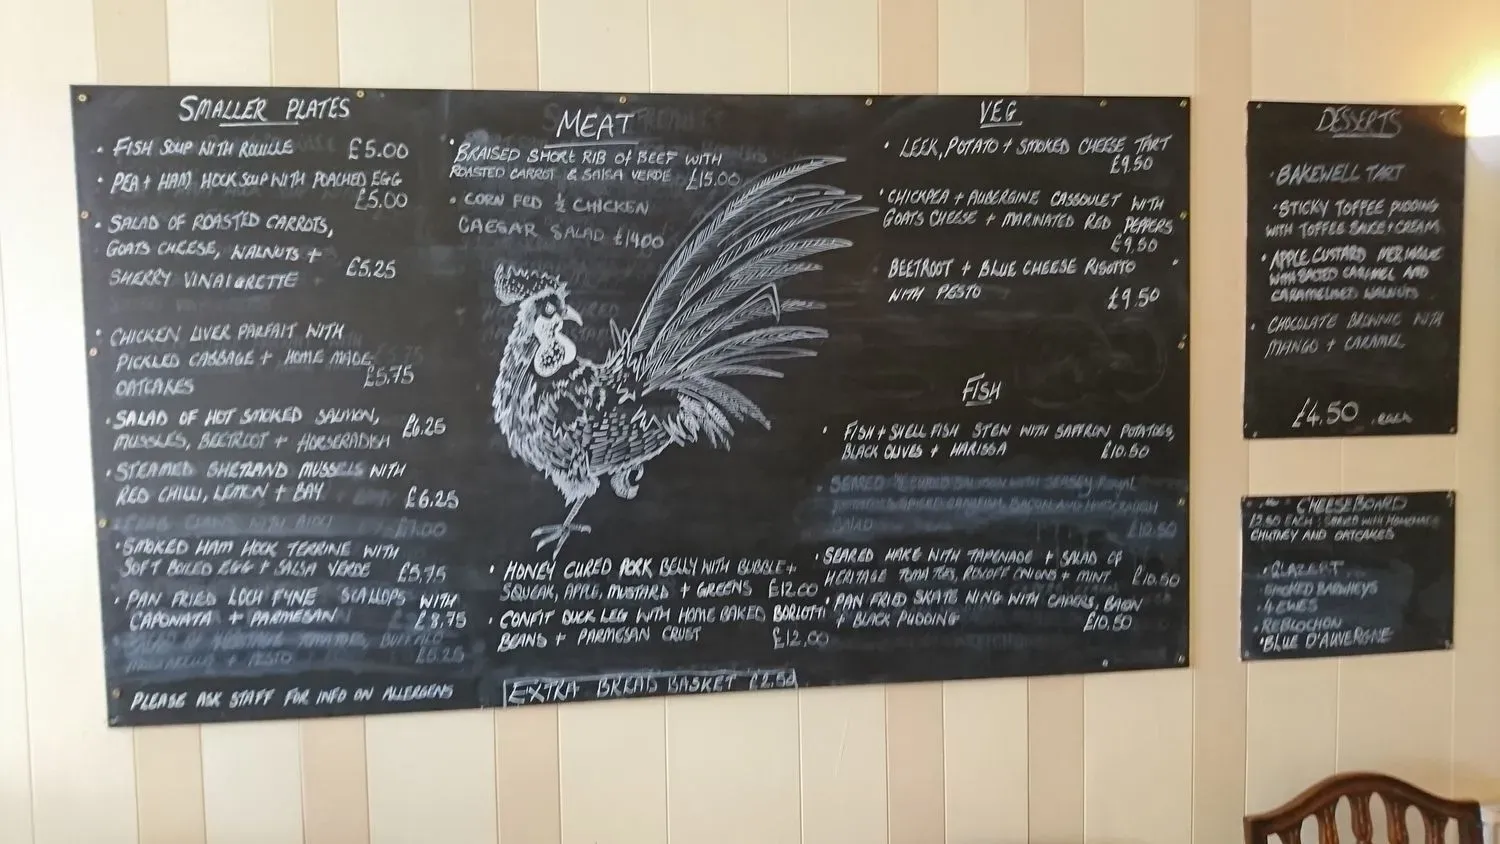 SMALLER PLATES
• FISH SOUP WITH ROUILLE £5.00
• PEA + HAM HOCK SOUP WITH POACHED EGG
£5.00
• SALAD OF ROASTED CARROTS,
GOATS CHEESE, WALNUTS +
SHERRY VINAIGRETTE £5.25
• CHICKEN LIVER PARFAIT WITH
PICKLED CABBAGE + HOME MADE
OATCAKES £5.75
• SALAD OF HOT SMOKED SALMON,
MUSSLES, BEETROOT + HORSERADISH £6.25
• STEAMED SHETLAND MUSSELS WITH
RED CHILLI, LEMON + BAY £6.25
£7.00
• SMOKED HAM HOCK TERRINE WITH
SOFT BOILED EGG + SALSA VERDE £5.75
• PAN FRIED LOCH FYNE SCALLOPS WITH
CAPONATA + PARMESAN £8.75
SALAD OF HERITAGE TOMATOES, BUFFALO
MOZZARELLA + PESTO £5.25
PLEASE ASK STAFF FOR INFO ON ALLERGENS
MEAT
• BRAISED SHORT RIB OF BEEF WITH
ROASTED CARROT & SALSA VERDE £15.00
• CORN FED ½ CHICKEN
CAESAR SALAD £14.00
• HONEY CURED PORK BELLY WITH BUBBLE +
SQUEAK, APPLE, MUSTARD + GREENS £12.00
• CONFIT DUCK LEG WITH HOME BAKED BORLOTTI
BEANS + PARMESAN CRUST £12.00
EXTRA BREAD BASKET £2.50
VEG
• LEEK, POTATO + SMOKED CHEESE TART
£9.50
• CHICKPEA + AUBERGINE CASSOULET WITH
GOATS CHEESE + MARINATED RED PEPPERS
£9.50
BEETROOT + BLUE CHEESE RISOTTO
WITH PESTO £9.50
FISH
• FISH + SHELL FISH STEW WITH SAFFRON POTATOES,
BLACK OLIVES + HARISSA £10.50
• SEARED SALMON WITH JERSEY ROYAL
SALAD £10.50
• SEARED HAKE WITH TAPENADE + SALAD OF
HERITAGE TOMATOES, ONIONS + MINT £10.50
• PAN FRIED SKATE WING WITH CAPERS, BACON
+ BLACK PUDDING £10.50
DESSERTS
• BAKEWELL TART
• STICKY TOFFEE PUDDING
WITH TOFFEE SAUCE + CREAM
• APPLE CUSTARD MERINGUE
WITH SALTED CARAMEL AND
CARAMELISED WALNUTS
• CHOCOLATE BROWNIE WITH
MANGO + CARAMEL
£4.50 each
CHEESEBOARD
EACH SERVED WITH HOMEMADE
CHUTNEY AND OATCAKES
• SMOKED
• 4 EWES
• REBLOCHON
• BLUE D'AUVERGNE